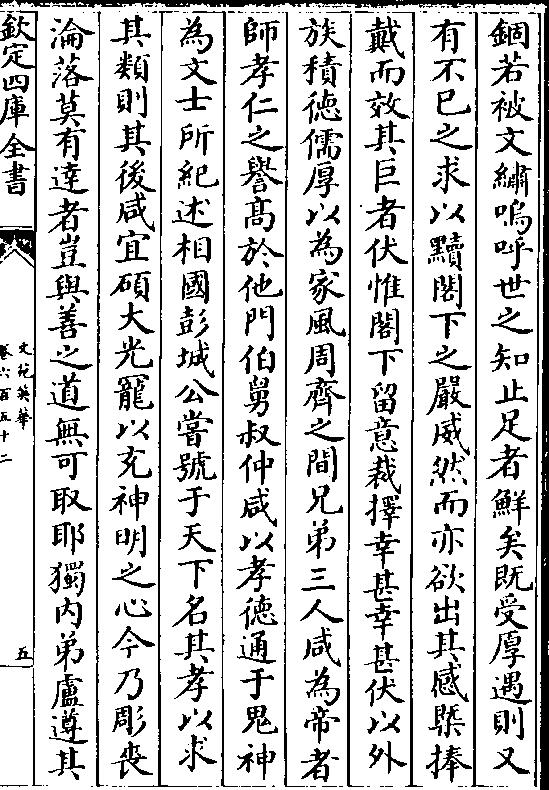 錮若被文繡嗚呼世之知止足者鮮矣既受厚遇則又
有不已之求以黷閣下之嚴威然而亦欲出其感槩捧
戴而效其巨者伏惟閣下留意裁擇幸甚幸甚伏以外
族積徳儒厚以為家風周齊之間兄弟三人咸為帝者
師孝仁之譽髙於他門伯舅叔仲咸以孝徳通于鬼神
為文士所紀述相國彭城公嘗號于天下名其孝以求
其類則其後咸宜碩大光寵以充神明之心今乃彫喪
淪落莫有達者豈與善之道無可取耶獨内弟盧遵其
欽定四庫全書
文苑英華
卷六百五十二
五